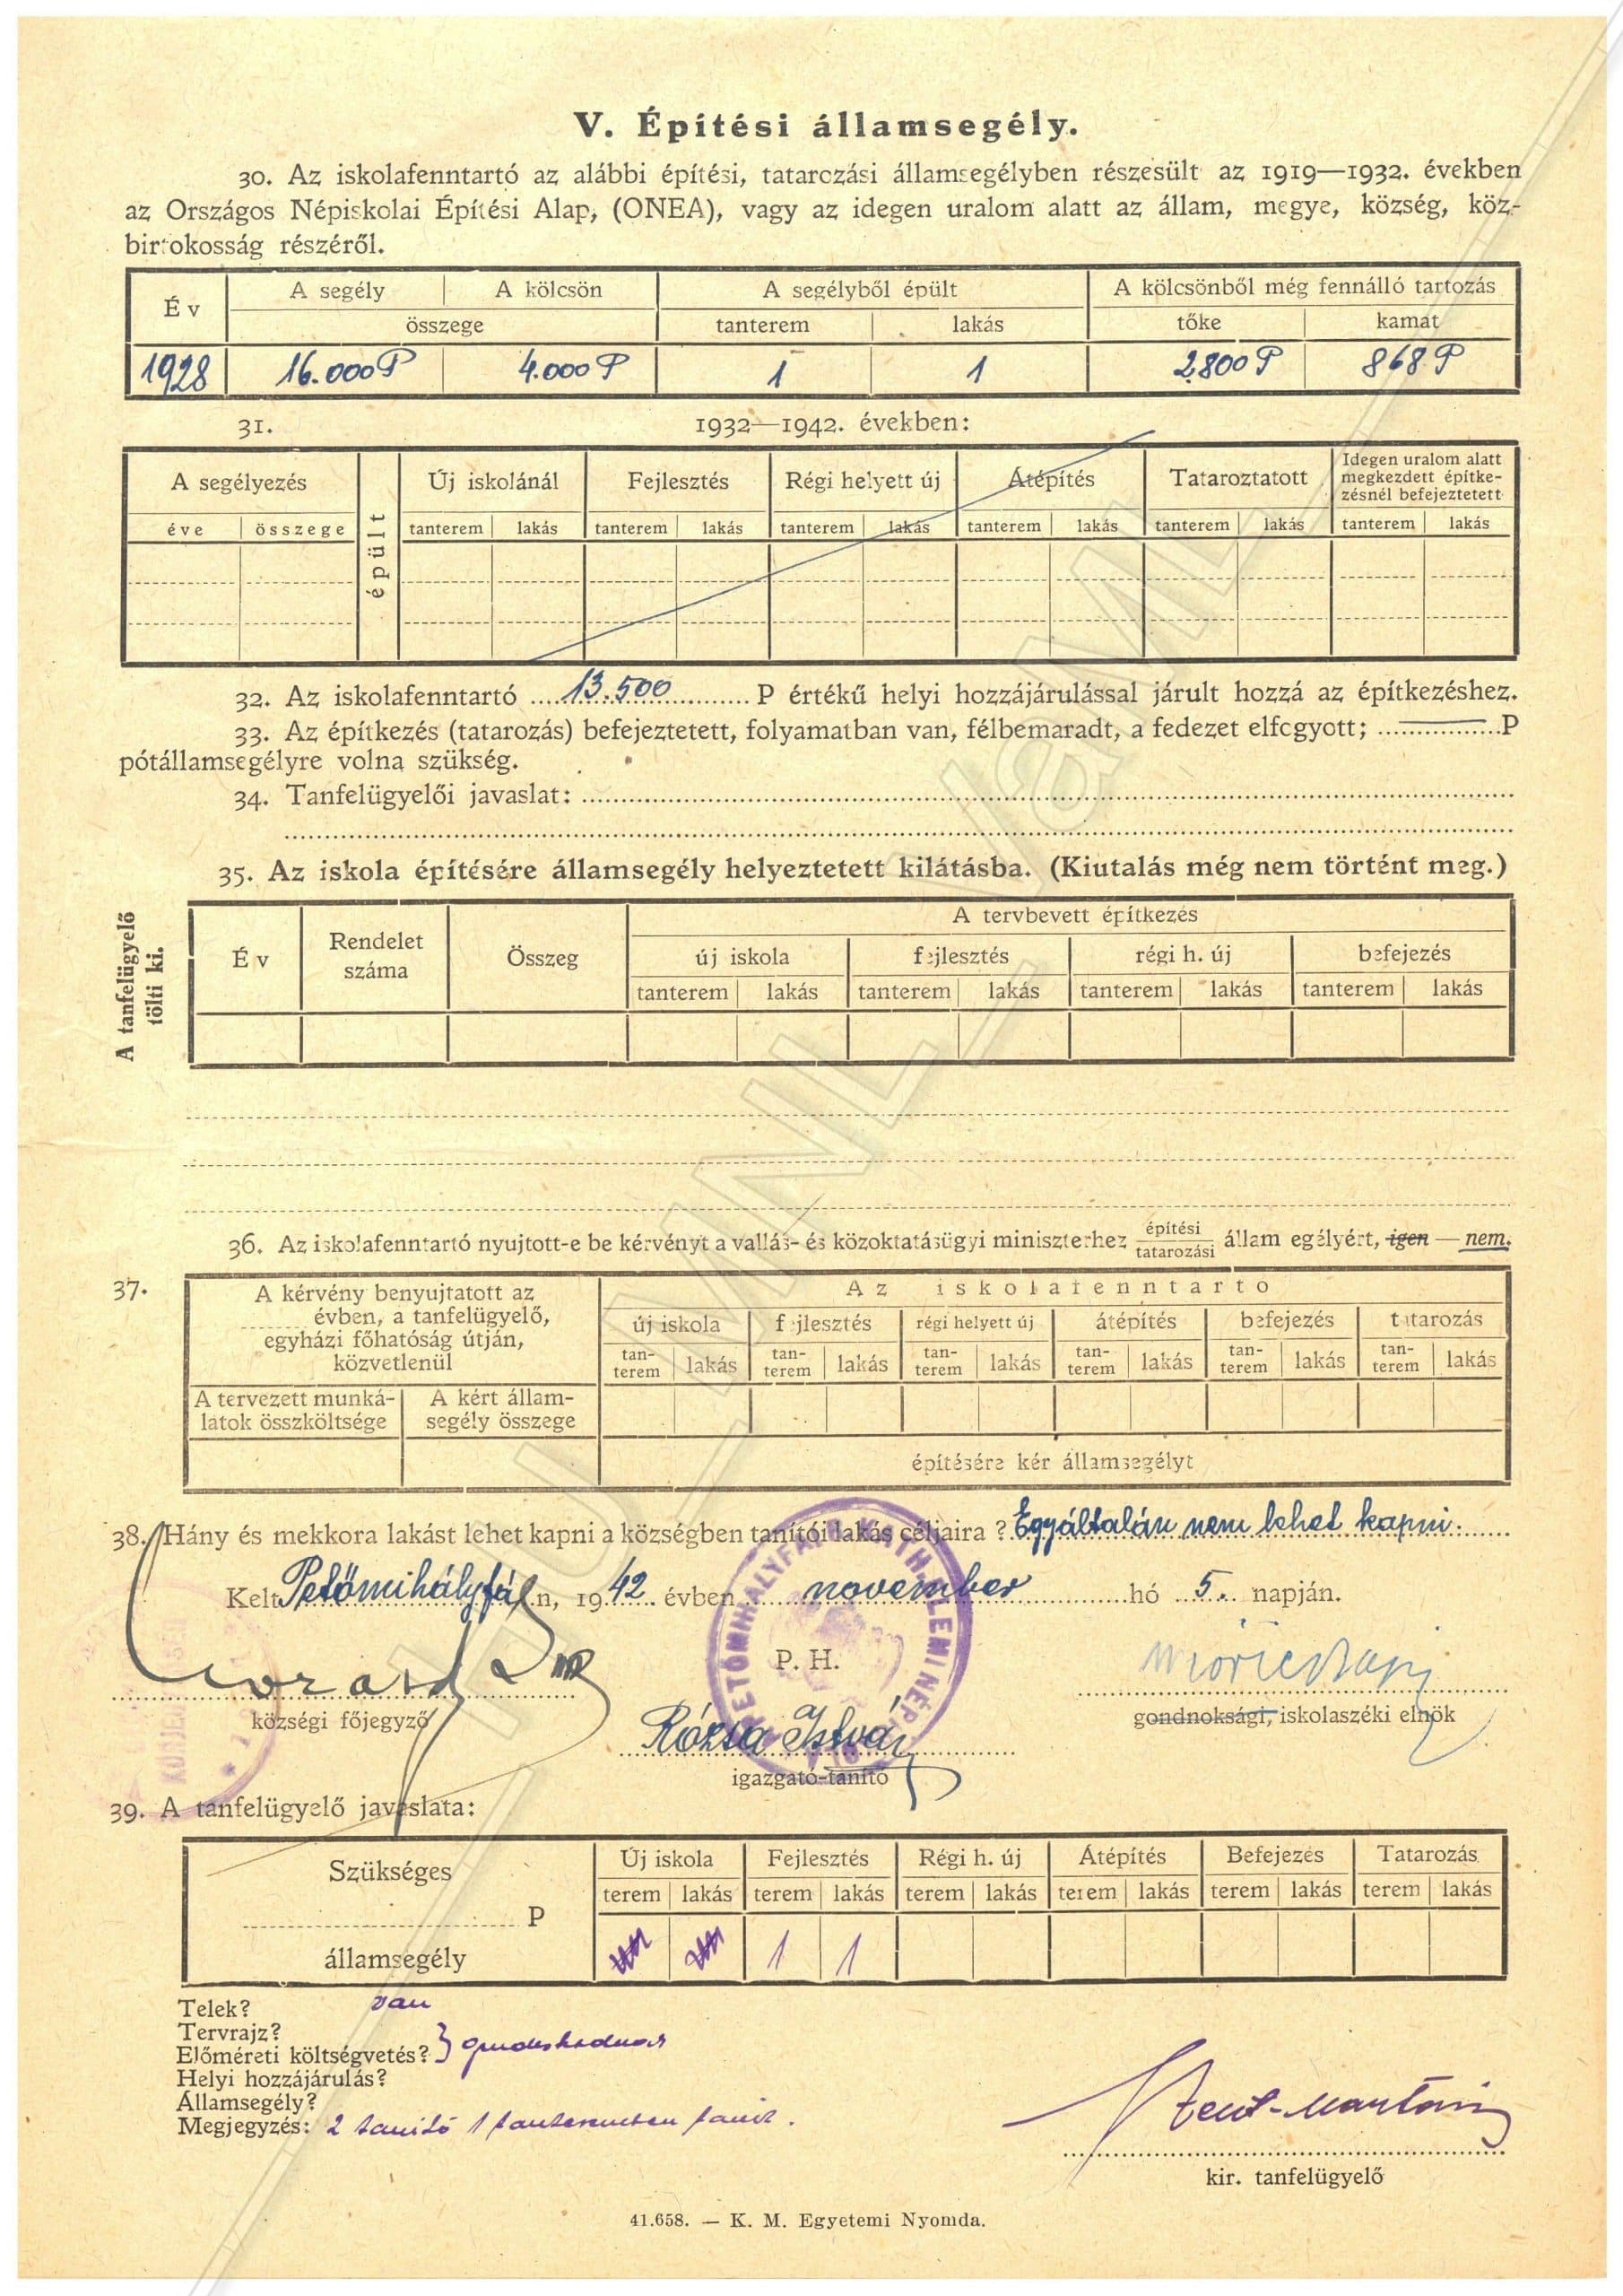 V. Építési államsegély.
30. Az iskolafenntartó az alábbi építési, tatarczási államsegélyben részesült az 1919—1932. években
az Országos Népiskolai Építési Alap, (ONEA), vagy az idegen uralom alatt az állam, megye, község, köz-
birtokosság részéről.
Év A segély A kölcsön A segélyből épült A kölcsönből még fennálló tartozás
összege tanterem lakás tőke kamat
1928 16.000 P 4.000 P 1 1 2.800 P 868 P
31. 1932—1942. években:
A segélyezés épült Új iskolánál Fejlesztés Régi helyett új Átépítés Tataroztatott Idegen uralom alatt
megkezdett építke-
zésnél befejeztetett
éve összege tanterem lakás tanterem lakás tanterem lakás tanterem lakás tanterem lakás tanterem lakás
32. Az iskolafenntartó 13.500 P értékű helyi hozzájárulással járult hozzá az építkezéshez.
33. Az építkezés (tatarozás) befejeztetett, folyamatban van, félbemaradt, a fedezet elfogyott; P
pótállamsegélyre volna szükség.
34. Tanfelügyelői javaslat:
35. Az iskola építésére államsegély helyeztetett kilátásba. (Kiutalás még nem történt meg.)
A tanfelügyelő
tölti ki.
A tervbevett építkezés
Év Rendelet
száma Összeg új iskola fejlesztés régi h. új befejezés
tanterem lakás tanterem lakás tanterem lakás tanterem lakás
36. Az iskolafenntartó nyujtott-e be kérvényt a vallás- és közoktatásügyi miniszterhez építési
tatarozási állam egélyért, igen — nem.
37. A kérvény benyujtatott az
évben, a tanfelügyelő,
egyházi főhatóság útján,
közvetlenül
Az iskolafenntartó
új iskola fejlesztés régi helyett új átépítés befejezés tatarozás
tan-
terem lakás tan-
terem lakás tan-
terem lakás tan-
terem lakás tan-
terem lakás tan-
terem lakás
A tervezett munká-
latok összköltsége A kért állam-
segély összege
építésére kér államsegélyt
38. Hány és mekkora lakást lehet kapni a községben tanítói lakás céljaira? Egyáltalán nem lehet kapni.
Kelt Petőmihályfán, 1942 évben november hó 5. napján.
P. H.
PETŐMIHÁLYFAI R. KATH. ELEMI NÉP
községi főjegyző
gondnoksági, iskolaszéki elnök
Rózsa István
igazgató-tanító
39. A tanfelügyelő javaslata:
Szükséges Új iskola Fejlesztés Régi h. új Átépítés Befejezés Tatarozás
terem lakás terem lakás terem lakás terem lakás terem lakás terem lakás
P
államsegély 1 1
Telek? van
Tervrajz?
Előméreti költségvetés?
Helyi hozzájárulás?
Államsegély?
Megjegyzés: 2 tanító 1 tanteremben tanít.
kir. tanfelügyelő
41.658. — K. M. Egyetemi Nyomda.
HU_MNL_VaML